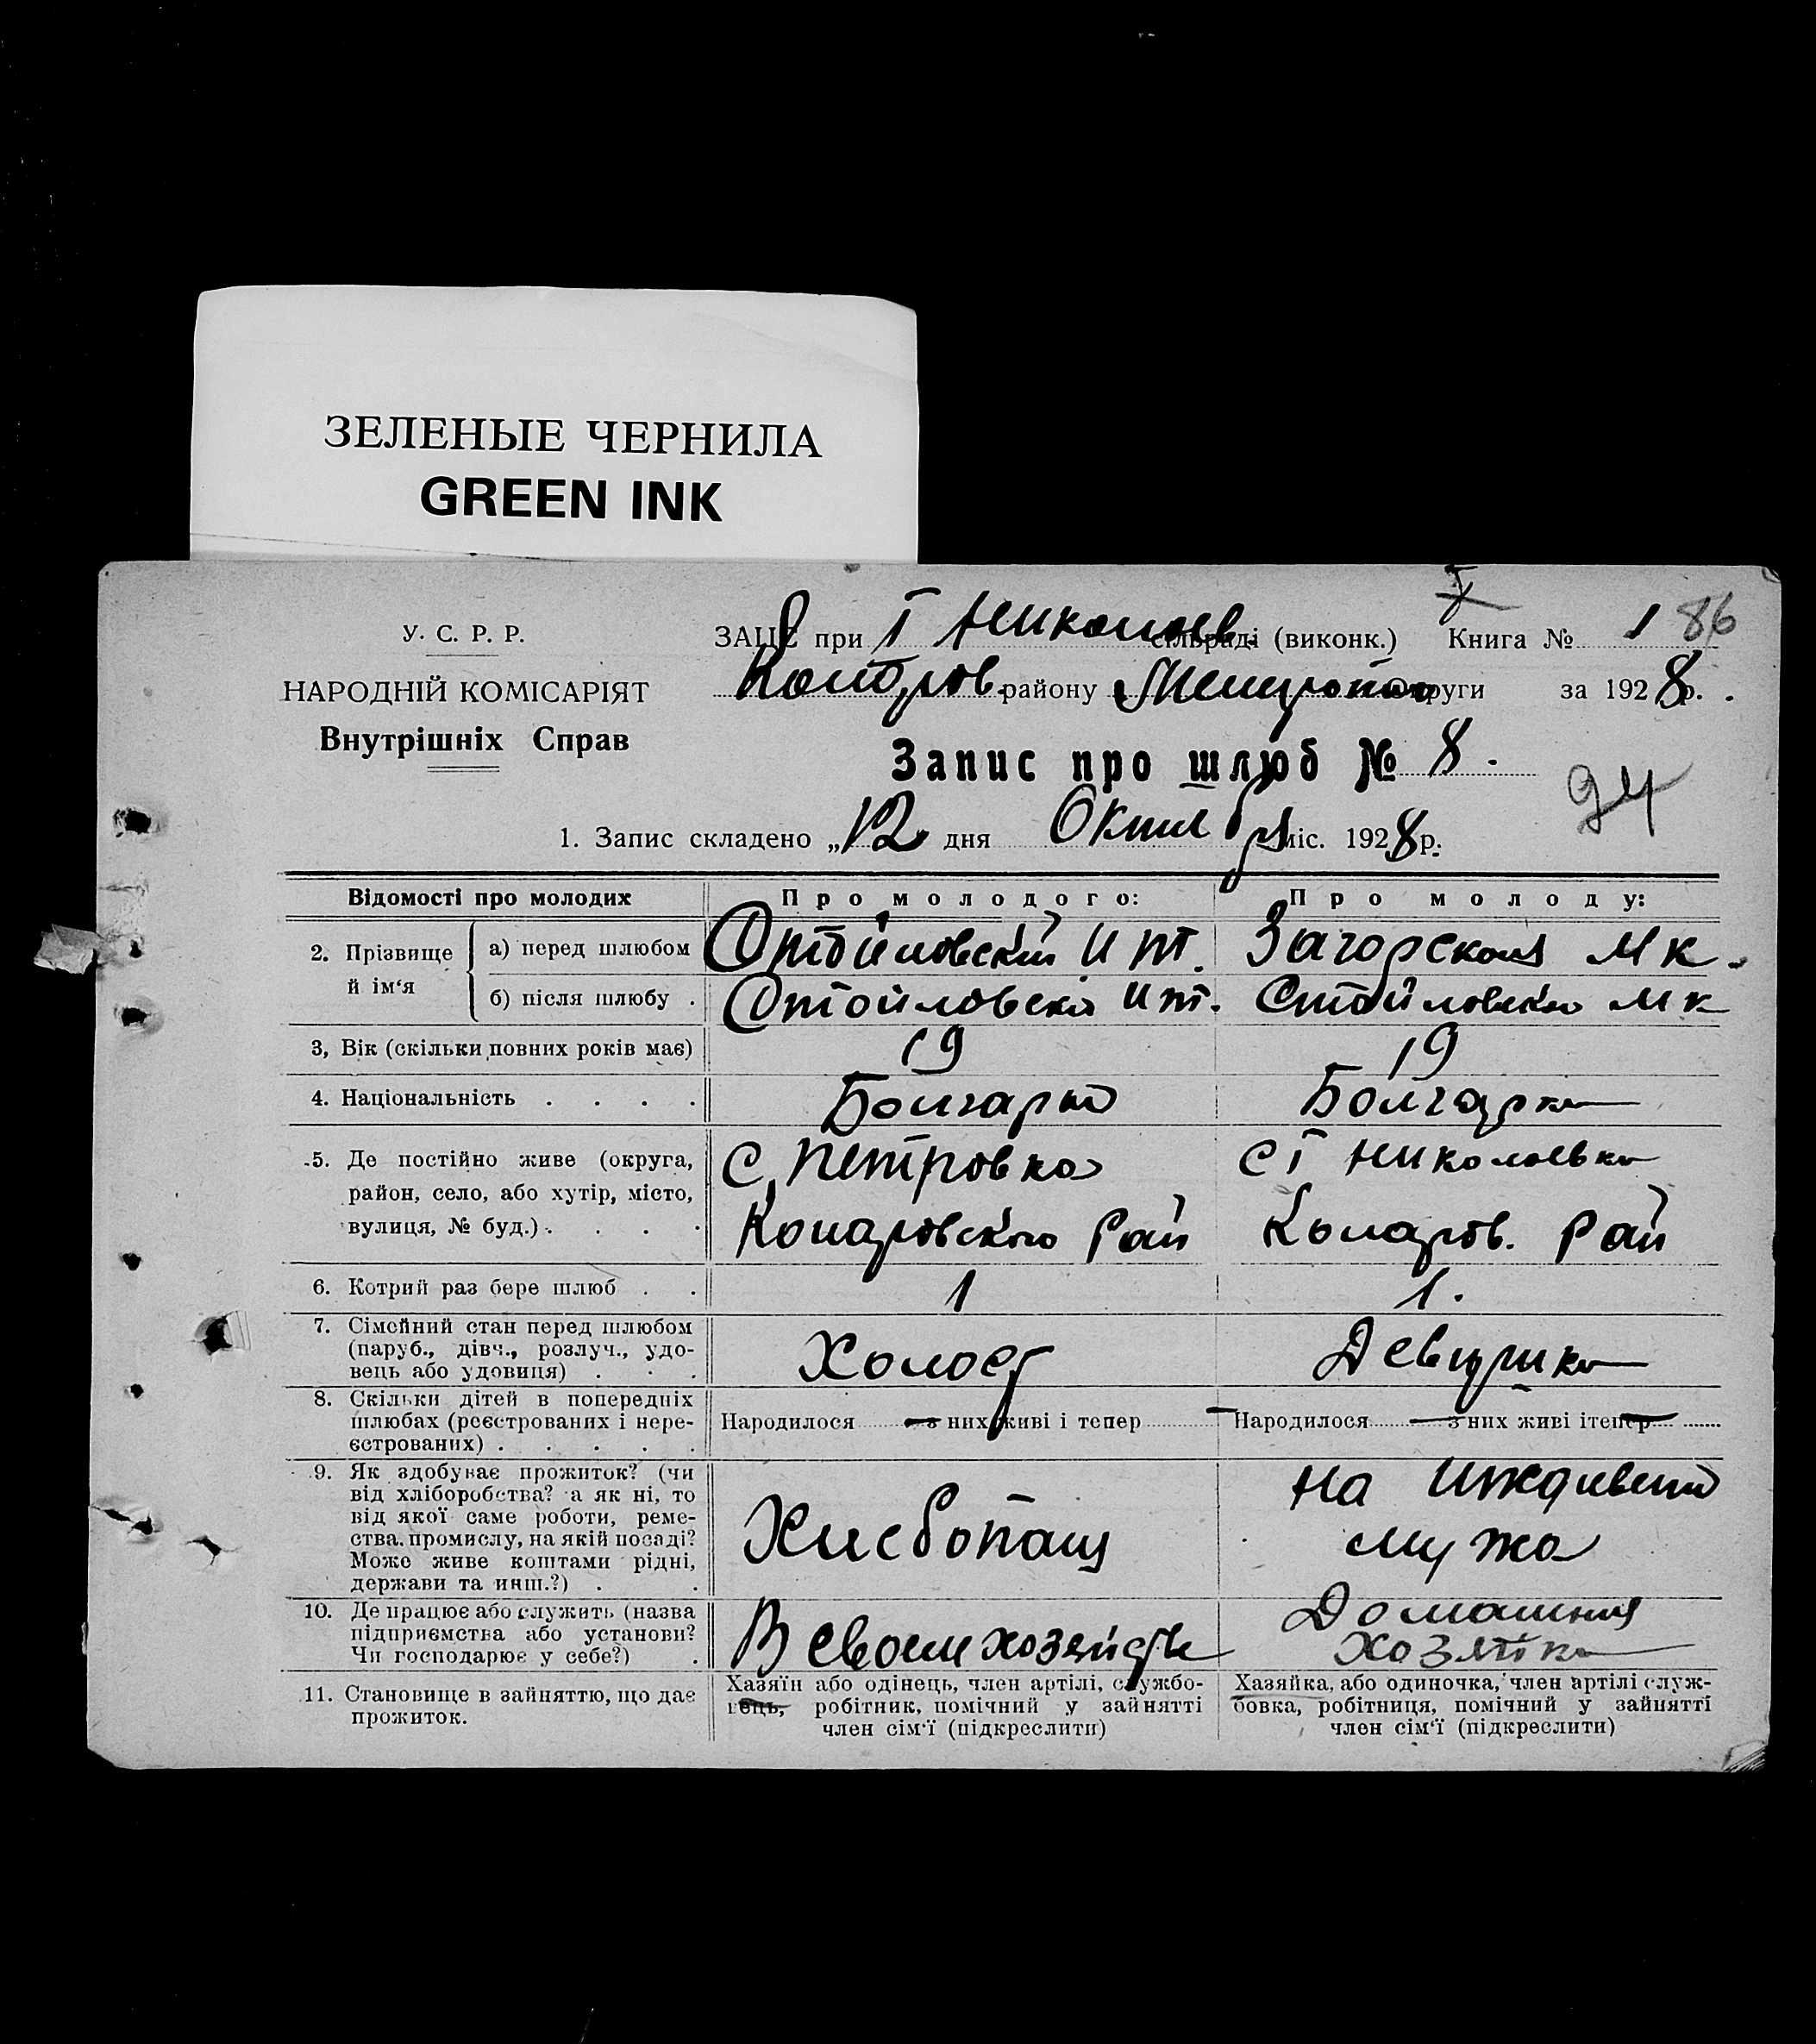 ЗЕЛЕНЫЕ ЧЕРНИЛА
GREEN INK
У. С. Р. Р.
НАРОДНІЙ КОМІСАРІЯТ
Внутрішніх Справ
ЗАЦС при Г Николаев. сільраді (виконк.) Книга № 1 86
района району округи за 1928 р.
Запис про шлюб № 8.
24
1. Запис складено „12 дня Октября міс. 1928 р.
Відомості про молодих Про молодого: Про молоду:
2. Прізвище й ім‘я
а) перед шлюбом Стойловский И П. Загорская М К.
б) після шлюбу . Стойловский И П. Стойловская М К
3, Вік (скільки повних років має) 19 19
4. Національність . . . . Болгарин Болгарка
5. Де постійно живе (округа, район, село, або хутір, місто, вулиця, № буд.) . . . .
с Петровка
Коларовского Рай
с Г Николаевка
Коларов. Рай
6. Котрий раз бере шлюб . . 1 1.
7. Сімейний стан перед шлюбом
(паруб., дівч., розлуч., удо-
вець або удовиця) . . . Холост Девушка
8. Скільки дітей в попередніх
шлюбах (реєстрованих і нере-
єстрованих) . . . . .
Народилося — з них живі і тепер —
Народилося — з них живі і тепер —
9. Як здобуває прожиток? (чи
від хліборобства? а як ні, то
від якої саме роботи, реме-
ства, промислу, на якій посаді?
Може живе коштами рідні,
держави та инш.?) . .
Хлебопащ
На иждивении
мужа
10. Де працює або служить (назва
підприємства або установи?
Чи господарює у себе?) .
В своем хозяйстве
Домашняя
Хозяйка
11. Становище в зайняттю, що дає
прожиток.
Хазяїн або одінець, член артілі, службо-
вець, робітник, помічний у зайнятті
член сім‘ї (підкреслити)
Хазяйка, або одиночка, член артілі служ-
бовка, робітниця, помічний у зайнятті
член сім‘ї (підкреслити)